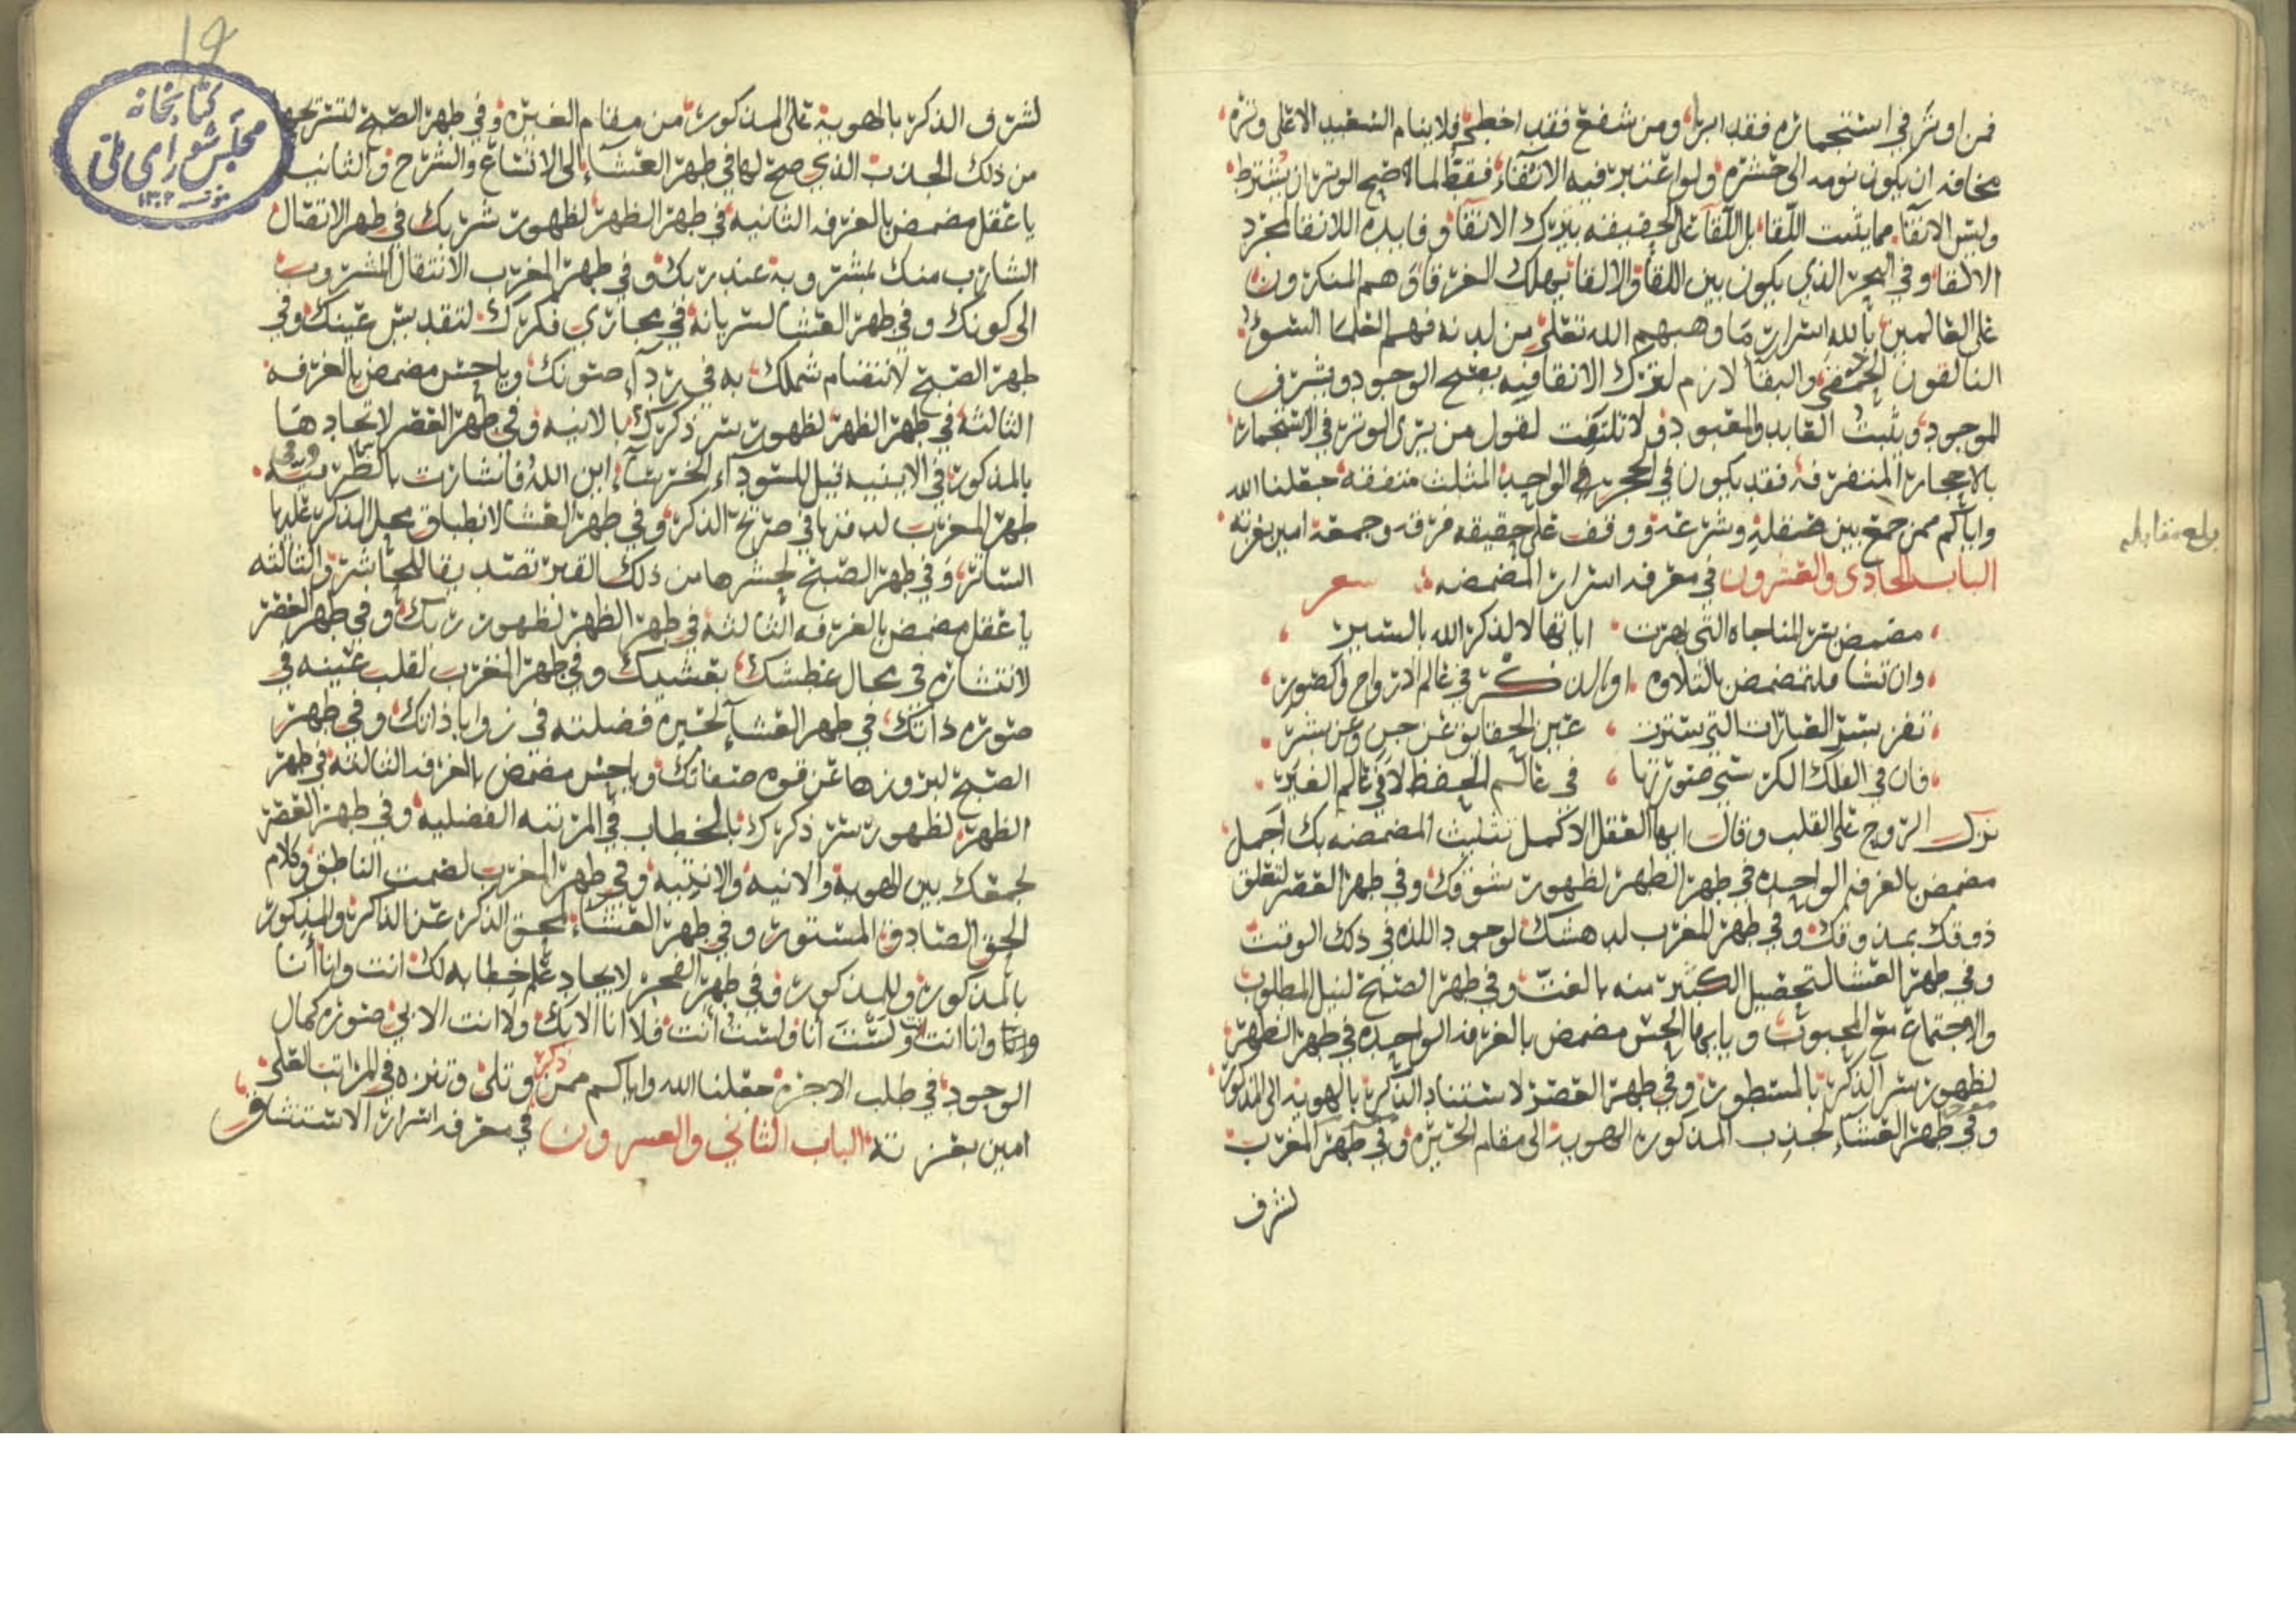 فمن اوتر في استنجماره فقد ابرا ومن شفع فقد اخطى فلا ينام السعيد الا على وتره
مخافه ان يكون نومه الى حشره ولو اعتبر فيه الانقاء فقط لما صح الوتر ان يشترط
وليس الانقا مما يثبت اللقا بل اللقا على الحقيقه بترك الانقا وفايده اللانقا لمجرد
الالقا وفي البحر الذي يكون بين اللقا والالقا يهلك الغرقا وهم المنكرون
على العالمين بالله اسرار ما وهبهم الله تعلى من لدنه فهم العلما السوء
التالقون الحمقى والبقا لازم لترك الانقا فبه يصح الوجود ويشرف
الموجود ويثبت العابد والمعبود ولا تلتفت لقول من يرى الوتر في الاستجمار
بالاحجار المتفرقه فقد يكون في الحجر الواحد المثلث متفقه جعلنا الله
واياكم ممن جمع بين عقله وشرعه ووقف على حقيقه فرقه وجمعه امين بعزته
الباب الحادى والعشرون في معرفه اسرار المضمضه شعر
مضمض بسر المناجاه التي ظهرت اياتها لا لذكر الله بالسير
وان تشا فلتمضمض بالتلاوه او بالذكر في عالم الارواح والصور
تفز بستر العبارات التي سترت عين الحقايق عن جن وعن بشر
فان في الفلك الكرسي صورتها في عالم الحفظ لا في عالم الغير
نزل الروح على القلب وقال ايها العقل الاكمل تثليث المضمضه بك اجمل
مضمض بالغرفه الواحده في طهر الظهر لظهور شوقك وفي طهر العصر لتعلق
ذوقك بمذوقك وفي طهر المغرب لدهشك لوجود اللذه في ذلك الوقت
وفي طهر العشا لتحصيل الكثير منه بالغت وفي طهر الصبح لنيل المطلوب
والاجتماع مع المحبوب ويا ايها الحس مضمض بالغرفه الواحده في طهر الظهر
لظهور سر الذكر بالمسطور وفي طهر العصر لاستناد الذكر بالهويه الى المذكور
وفي طهر العشاء لجذب المذكور الهويه الى مقام الحيره وفي طهر المغرب
لشرف
بلغ مقابله
لشرف الذكر بالهويه على المذكور من مقام الغيره وفي طهر الصبح لتسريحها
من ذلك الجذب الذي صح لها في طهر العشاء الى الاتساع والشرح والثانيه
يا عقل مضمض بالغرفه الثانيه في طهر الظهر لظهور شربك وفي طهر الاتصال
الشارب منك بمشروبه عند ربك وفي طهر المغرب الانتقال المشروب
الى كونك وفي طهر العشا لسريانه في مجاري فكرك لتقديس عينك وفي
طهر الصبح لانتضام شملك به في رداء صونك ويا حس مضمض بالغرفه
الثالثه في طهر الظهر لظهور سر ذكرك بالانيه وفي طهر العصر لاتحادها
بالمذكور في الاينيه قيل للسوداء الخرساء اين الله فاشارت بالظرفيه وفي
طهر المغرب لدفنها في ضريح الذكر وفي طهر العشا لانطباق محل الذكر عليها
الساتر وفي طهر الصبح لحشرها من ذلك القبر تصديقا للحاشر والثالثه
يا عقل مضمض بالغرفه الثالثه في طهر الظهر لظهور ربك وفي طهر العصر
لانتشاره في محال عطشك بعشيك وفي طهر المغرب لقلب عينه في
صوره ذاتك في طهر العشا لتحير فضلته في زوايا ذاتك وفي طهر
الصبح لبروزها عن قوه صفاتك ويا حس مضمض بالغرفه الثالثه في طهر
الظهر لظهور سر ذكرك بالخطاب في المرتبه الفضليه وفي طهر العصر
لجمعك بين الهويه والانيه والاينيه وفي طهر المغرب لصمت الناطق وكلام
الحق الصادق المستور وفي طهر العشاء لمحق الذكر عن الذاكر والمذكور
بالمذكور وللمذكور وفي طهر الفجر لايجاد علم خطابه لك انت وانا انا
وانا انت ولست انا ولست انت فلا انا الا بك ولا انت الا بي صوره كمال
الوجود في طلب الاجر جعلنا الله واياكم ممن ذكر وتلى وتنزه في المراتب العلى
امين بعزته الباب الثاني والعشرون في معرفه اسرار الاستنشاق
19
كتابخانه
مجلس شوراى ملى
١٣٠٢